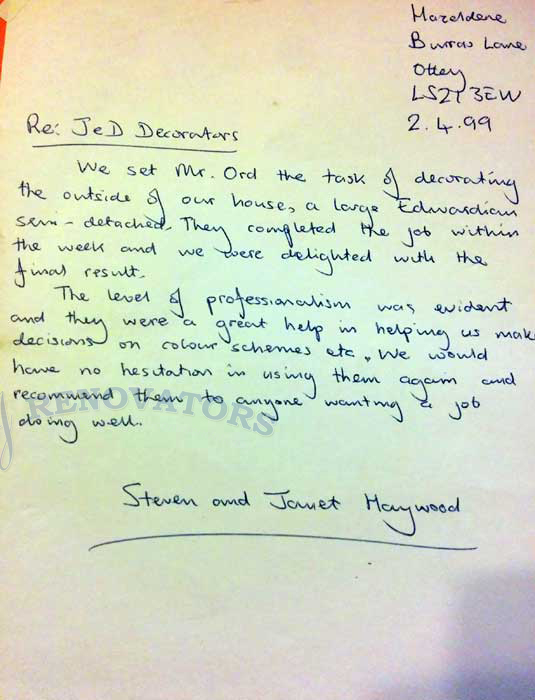 Hazeldene
Burras Lane
Otley
LS21 3EW
2.4.99
Re: JeD Decorators
We set Mr. Ord the task of decorating
the outside of our house, a large Edwardian
semi-detached. They completed the job within
the week and we were delighted with the
final result.
The level of professionalism was evident
and they were a great help in helping us make
decisions on colour schemes etc. We would
have no hesitation in using them again and
recommend them to anyone wanting a job
doing well.
RENOVATORS
Steven and Janet Haywood